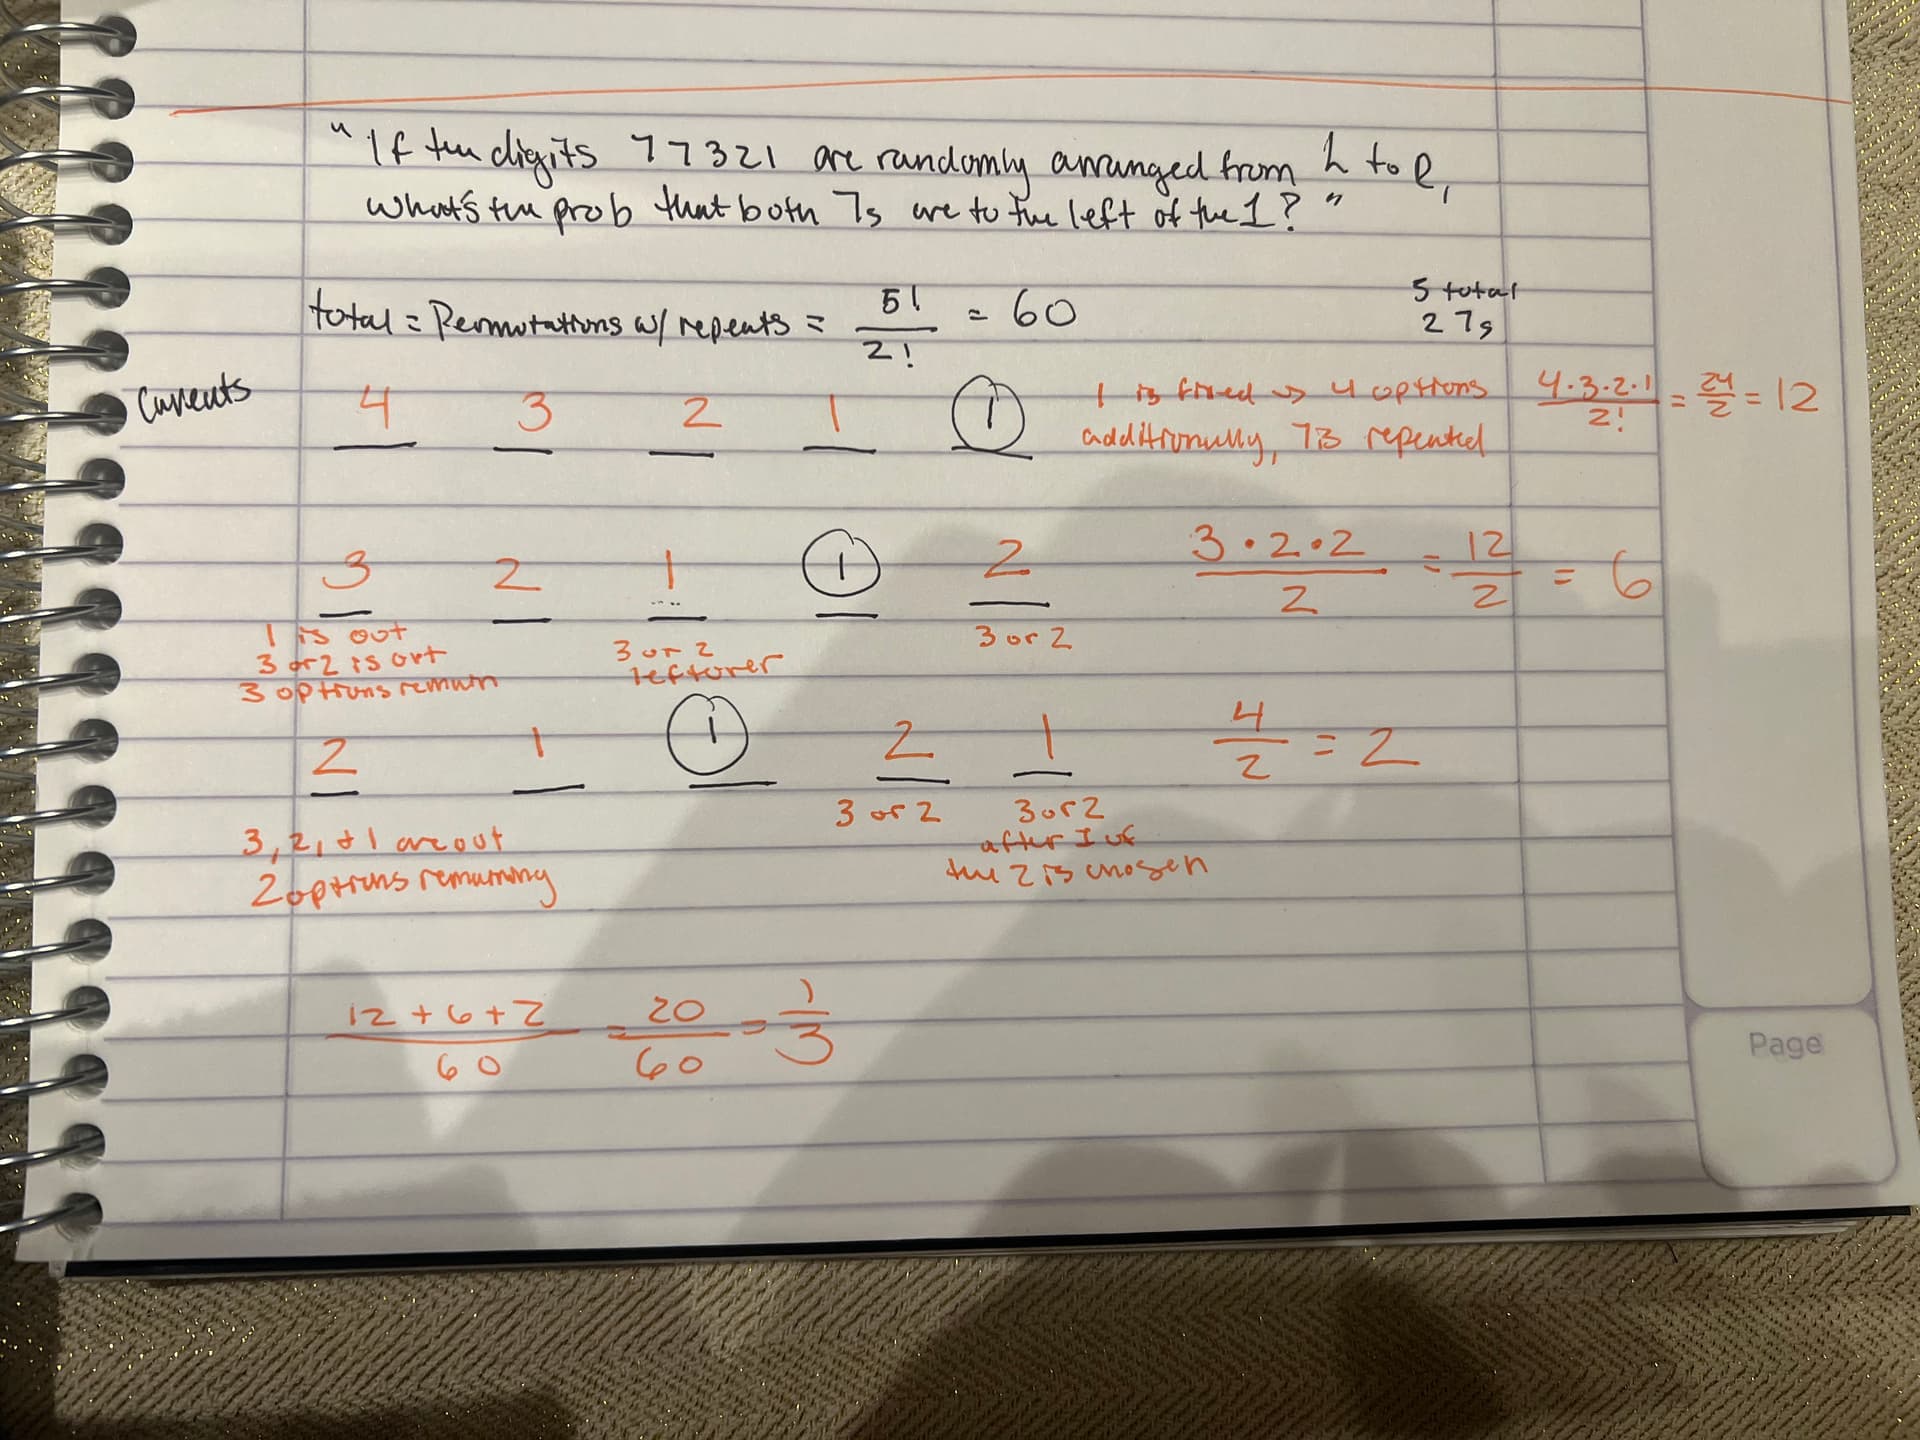 "If the digits 77321 are randomly arranged from L to R,
what's the prob that both 7s are to the left of the 1?"
total = Permutations w/ repeats = 5!/2! = 60
5 total
2 7s
4 3 2 1 1
1 is fixed → 4 options
additionally, 7 is repeated
4·3·2·1/2! = 24/2 = 12
3 2 1 1 2
3·2·2/2 = 12/2 = 6
1 is out
3 or 2 is out
3 options remain
3 or 2
leftover
3 or 2
2 1 1 2 1
4/2 = 2
3, 2, + 1 are out
2 options remaining
3 or 2
3 or 2
after 1 of
the 2 is chosen
12 + 6 + 2/60 = 20/60 = 1/3
Page